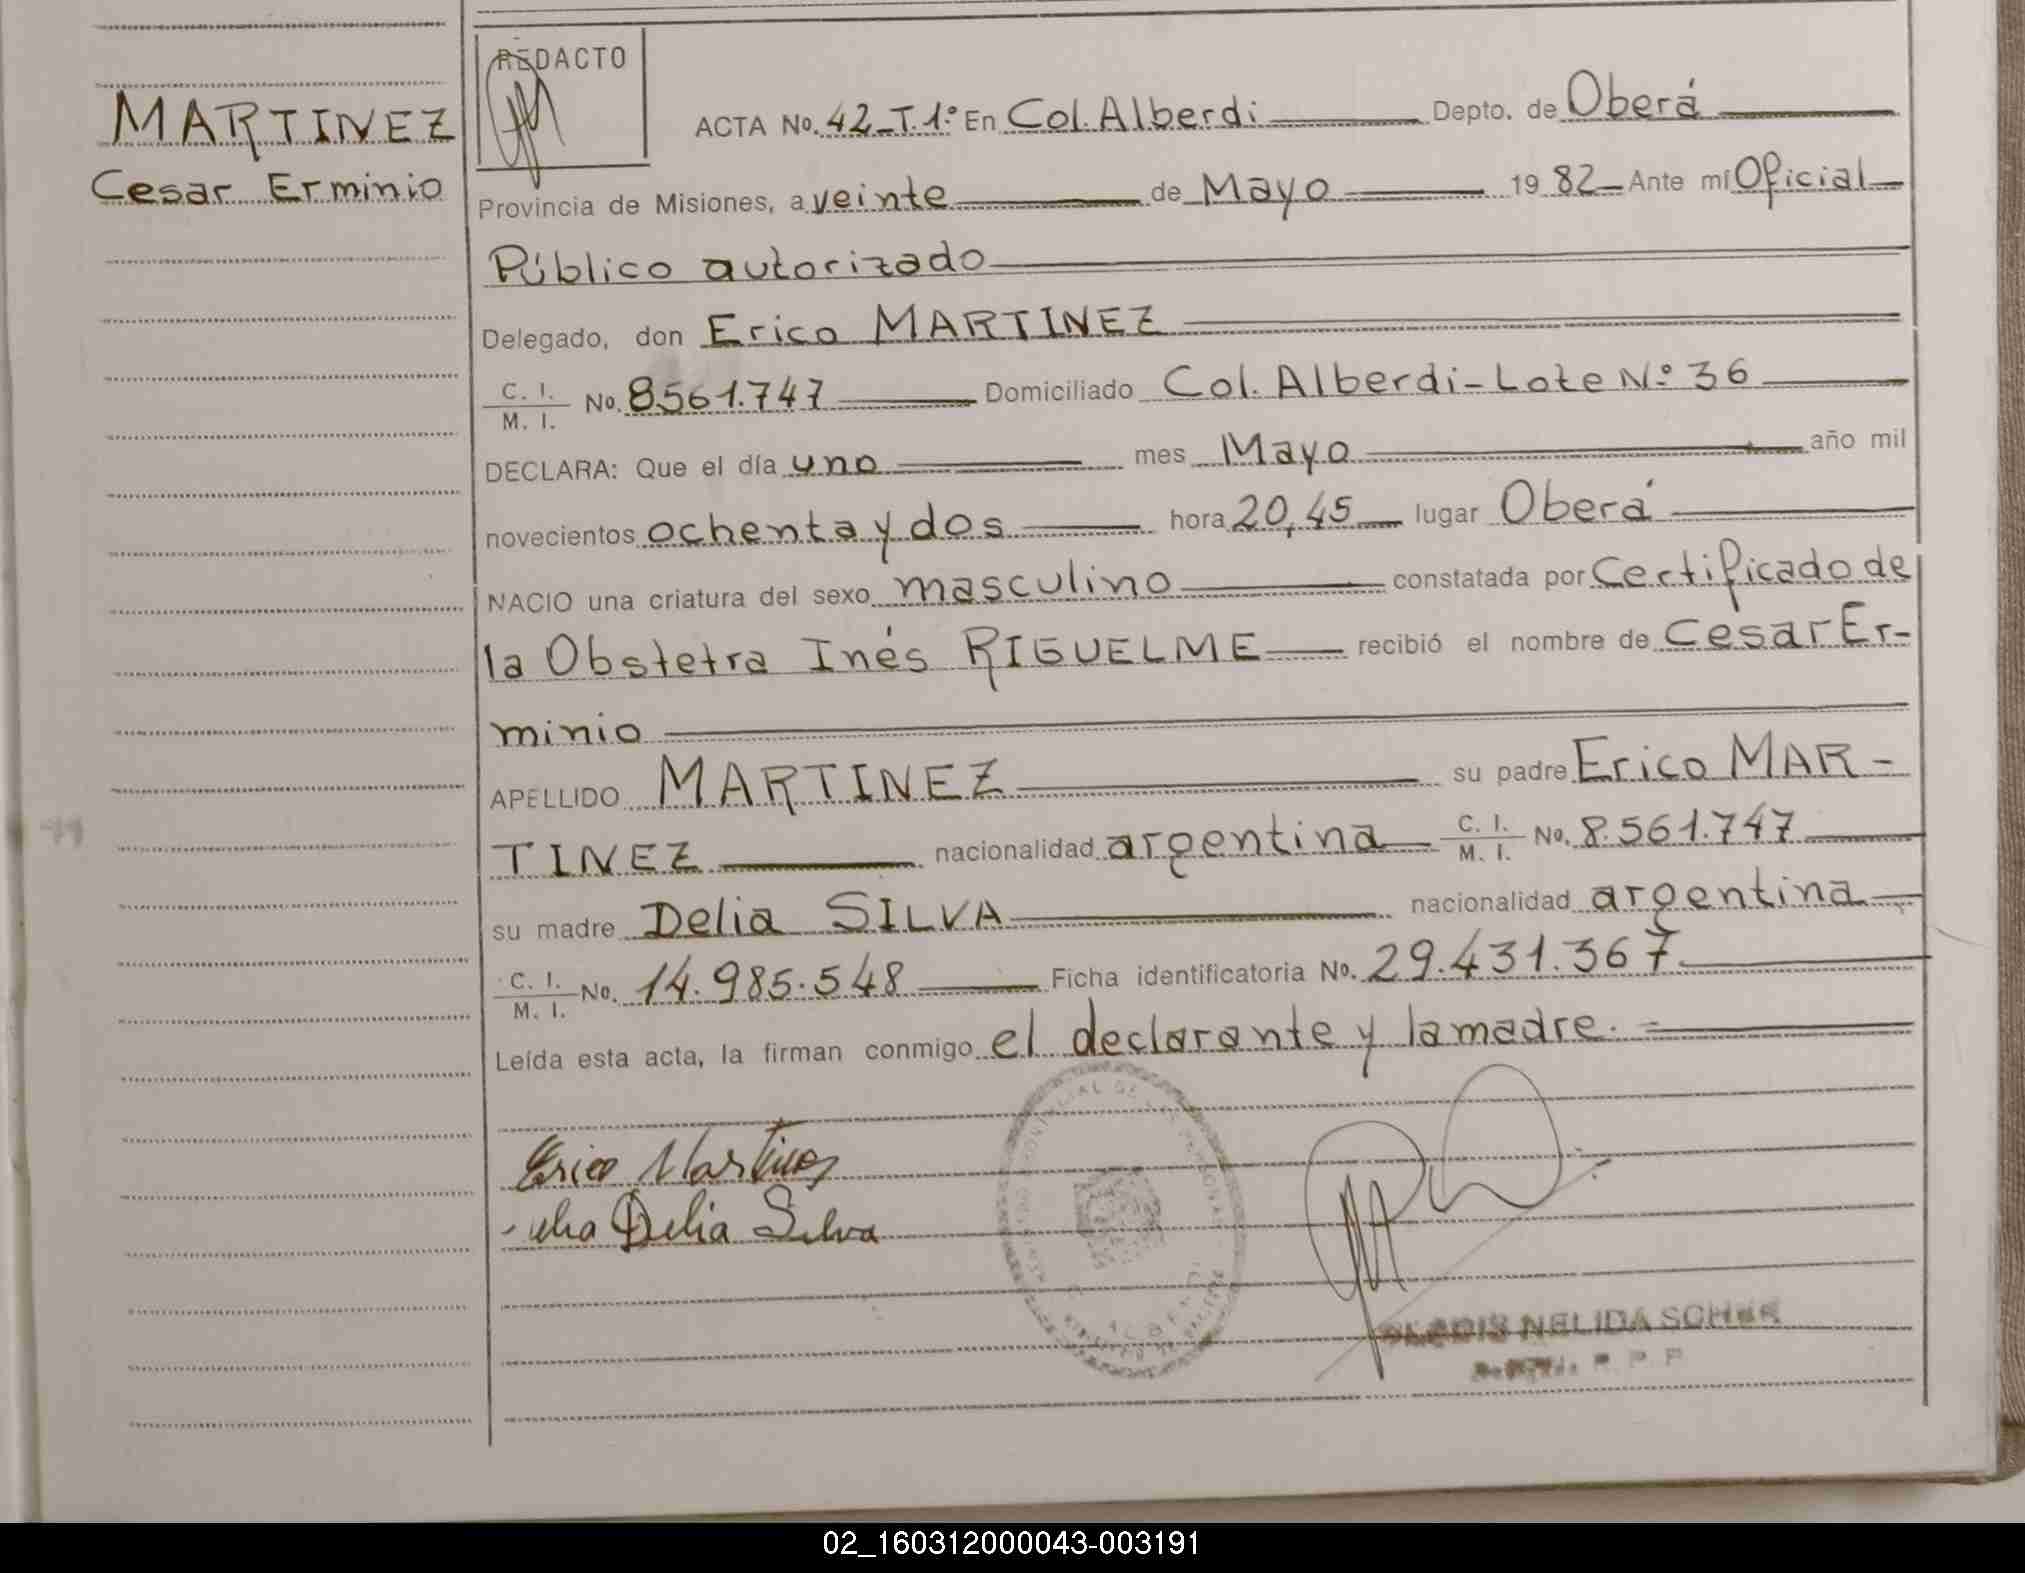 REDACTO
MARTINEZ
Cesar Erminio
ACTA No. 42-T.1º En Col. Alberdi Depto. de Oberá
Provincia de Misiones, a veinte de Mayo 1982 Ante mí Oficial
Público autorizado
Delegado, don Erico MARTINEZ
C. I. M. I. No. 8561.747 Domiciliado Col. Alberdi-Lote Nº 36
DECLARA: Que el día uno mes Mayo año mil
novecientos ochenta y dos hora 20,45 lugar Oberá
NACIO una criatura del sexo masculino constatada por Certificado de
la Obstetra Inés RIGUELME recibió el nombre de Cesar Er-
minio
APELLIDO MARTINEZ su padre Erico MAR-
TINEZ nacionalidad argentina C. I. M. I. No. 8.561.747
su madre Delia SILVA nacionalidad argentina
C. I. M. I. No. 14.985.548 Ficha identificatoria No. 29.431.367
Leída esta acta, la firman conmigo el declarante y la madre.
Erico Martinez
Delia Silva
NELIDA
02_160312000043-003191